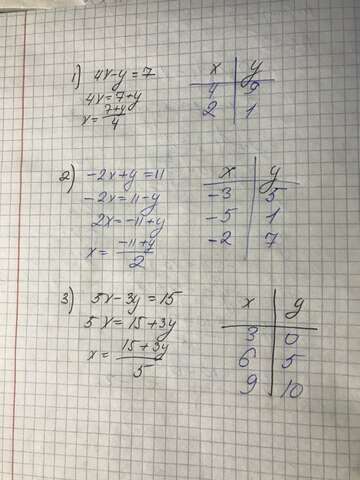 1) 4x-y=7
4x=7+y
x=\frac{7+y}{4}
x | y
4 | 9
2 | 1
2) -2x+y=11
-2x=11-y
2x=-11+y
x=\frac{-11+y}{2}
x | y
-3 | 5
-5 | 1
-2 | 7
3) 5x-3y=15
5x=15+3y
x=\frac{15+3y}{5}
x | y
3 | 0
6 | 5
9 | 10